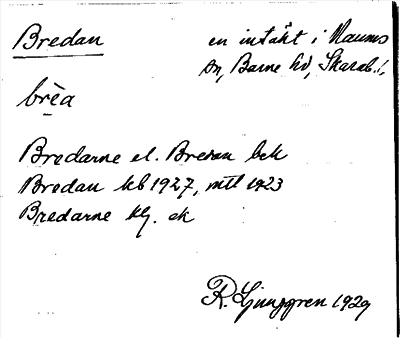 Bredan
en intäkt i Naums
sn, Barne hd, Skarab.l.
brèa
Bredarne el. Bredan bek
Bredan kb 1927, mtl 1923
Bredarne hg. ek
R. Ljunggren 1929